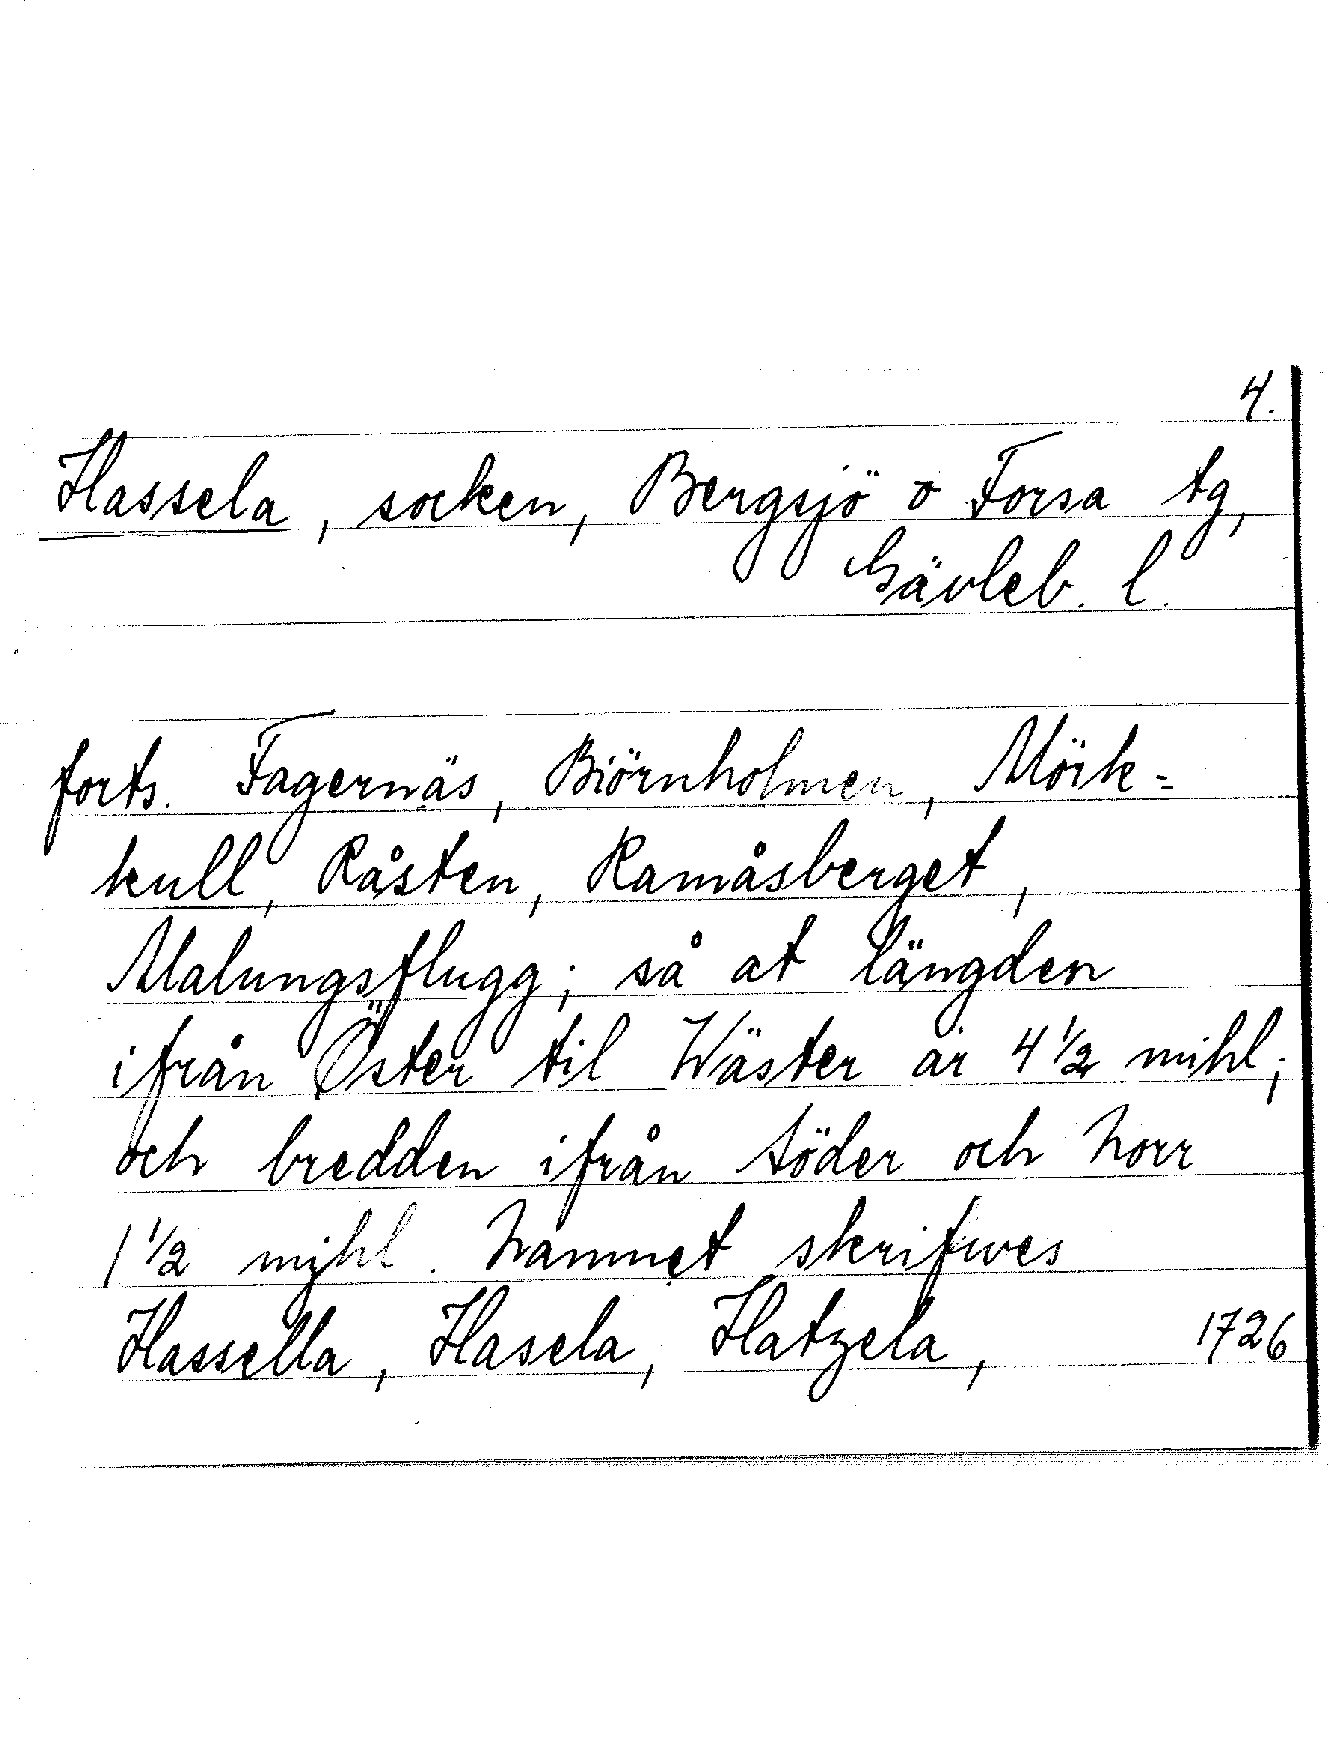 4.
Hassela, socken, Bergsjö o Forsa tg,
Gävleb. l.
forts. Fagernäs, Biörnholmen, Mörk-
kull, Råsten, Ramåsberget,
Malungsflugg; så at längden
ifrån Öster til Wäster är 4 1/2 mihl;
och bredden ifrån Söder och Norr
1 1/2 mijhl. Namnet skrifwes
Hassella, Hasela, Hatzela, 1726